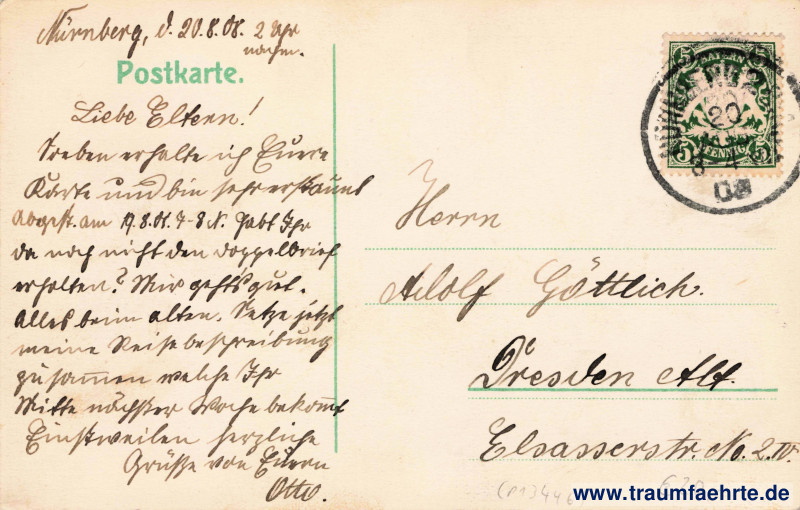 Nürnberg, d. 20.8.08. 2 Uhr
nachm.
Postkarte.
Liebe Eltern!
Soeben erhalte ich Euere
Karte und bin sehr erstaunt
Abgest. am 19.8.08. 7-8 N. Habt Ihr
da noch nicht den Doppelbrief
erhalten? Mir gehts gut.
Alles beim alten. Setze jetzt
meine Reisebeschreibung
zusammen welche Ihr
Mitte nächster Woche bekommt
Einstweilen herzliche
Grüsse von Euern
Otto.
5 BAYERN 5
5 PFENNIG 5
20
08
Herrn
Adolf Göttlich.
Dresden Alt.
Elsasserstr. No. 2. IV.
www.traumfaehrte.de